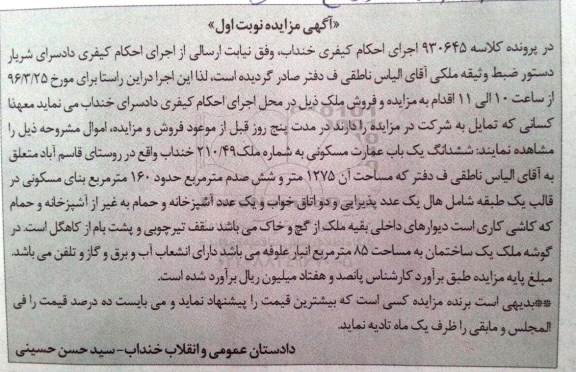 «آگهی مزایده نوبت اول»
در پرونده کلاسه ۹۳۰۶۴۵ اجرای احکام کیفری خنداب، وفق نیابت ارسالی از اجرای احکام کیفری دادسرای شریار
دستور ضبط وثیقه ملکی آقای الیاس ناطقی ف دفتر صادر گردیده است، لذا این اجرا دراین راستا برای مورخ ۹۶/۳/۲۵
از ساعت ۱۰ الی ۱۱ اقدام به مزایده و فروش ملک ذیل در محل اجرای احکام کیفری دادسرای خنداب می نماید معهذا
کسانی که تمایل به شرکت در مزایده را دارند در مدت پنج روز قبل از موعود فروش و مزایده، اموال مشروحه ذیل را
مشاهده نمایند: ششدانگ یک باب عمارت مسکونی به شماره ملک ۲۱۰/۴۹ خنداب واقع در روستای قاسم آباد متعلق
به آقای الیاس ناطقی ف دفتر که مساحت آن ۱۲۷۵ متر و شش صدم مترمربع حدود ۱۶۰ مترمربع بنای مسکونی در
قالب یک طبقه شامل هال یک عدد پذیرایی و دو اتاق خواب و یک عدد آشپزخانه و حمام به غیر از آشپزخانه و حمام
که کاشی کاری است دیوارهای داخلی بقیه ملک از گچ و خاک می باشد سقف تیرچوبی و پشت بام از کاهگل است. در
گوشه ملک یک ساختمان به مساحت ۸۵ مترمربع انبار علوفه می باشد دارای انشعاب آب و برق و گاز و تلفن می باشد.
مبلغ پایه مزایده طبق برآورد کارشناس پانصد و هفتاد میلیون ریال برآورد شده است.
**بدیهی است برنده مزایده کسی است که بیشترین قیمت را پیشنهاد نماید و می بایست ده درصد قیمت را فی
المجلس و مابقی را ظرف یک ماه تادیه نماید.
دادستان عمومی و انقلاب خنداب - سید حسن حسینی